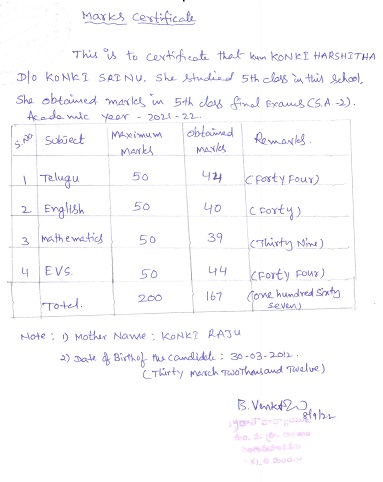 Marks Certificate
This is to certificate that kum KONKI HARSHITHA
D/o KONKI SRINU. She studied 5th class in this School.
She obtained marks in 5th class final Exams (S.A-2).
Academic year - 2021-22.
S.No Subject Maximum Marks Obtained Marks Remarks.
1 Telugu 50 44 (Forty Four)
2 English 50 40 (Forty)
3 Mathematics 50 39 (Thirty Nine)
4 EVS. 50 44 (Forty Four)
Total. 200 167 (one hundred Sixty seven)
Note : 1) Mother Name : KONKI RAJU
2) Date of Birth of the candidate : 30-03-2012.
(Thirty March Two Thousand Twelve)
B. Venkat
8/9/22